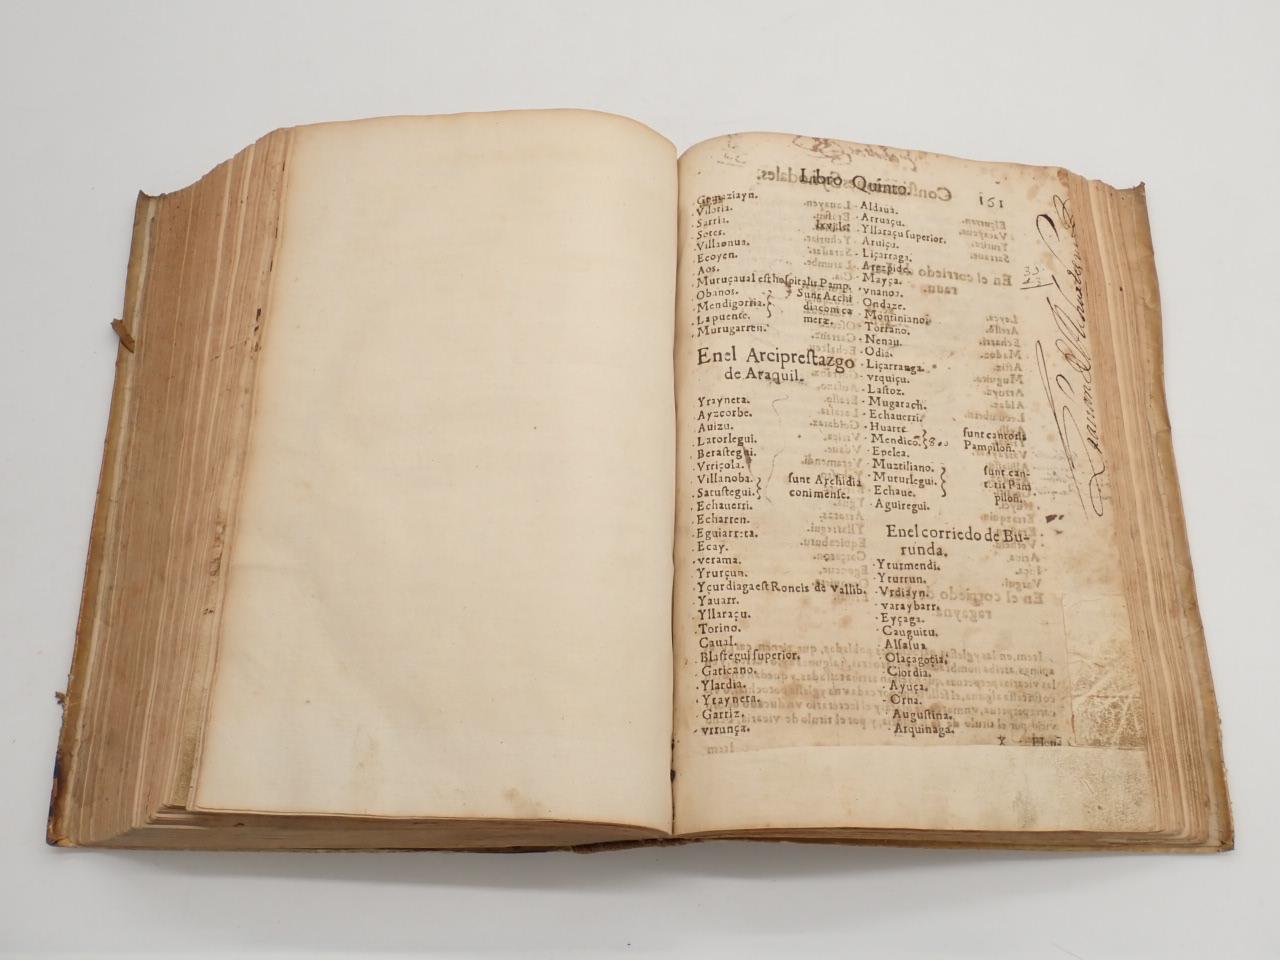 Libro Quinto. 161
Viloria.
Sarria.
Sotes.
Villaonua.
Ecoyen.
Aos.
Muruçaual est hospitalis Pamp.
Obanos.
Mendigorria. } Sunt Archi
Lapuente. diaconi ca
Murugarren. meræ.
Enel Arciprestazgo
de Araquil.
Yrayneta.
Ayzcorbe.
Auizu.
Latorlegui.
Berastegui.
Vrriçola.
Villanoba. } sunt Archidia
Satustegui. } conimense.
Echauerri.
Echarren.
Eguiarreta.
Ecay.
verama.
Yrurçun.
Yçurdiaga est Roncis de Vallib.
Yauarr.
Yllaraçu.
Torino.
Caual.
Blastegui superior.
Gaticano.
Ylardia.
Yrayneta.
Gartiz.
vrrunça.
Aldaua.
Arruaçu.
Yllaraçu superior.
Aruiçu.
Liçarraga.
Mayça.
vnanoa.
Ondaze.
Montiniano.
Torrano.
Nenau.
Odia.
Liçarranga.
vrquiçu.
Lastoz.
Mugarach.
Echauerri.
Huarte. sunt cantoris
Mendico. } & o. Pampilon̄.
Epelea.
Muztiliano. sunt can-
Muturlegui. } toris Pam
Echaue. pilon̄.
Aguiregui.
Enel corriedo de Bu-
runda.
Yturmendi.
Yturrun.
Vrdiayn.
varaybarr.
Eyçaga.
Cauguitu.
Alsasua
Olaçagotia.
Ciordia.
Ayuça.
Orna.
Augustina.
Arquinaga.
X